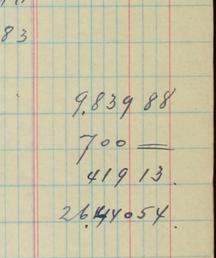 83
9.839 88
700 =
419 13.
26.440 54.